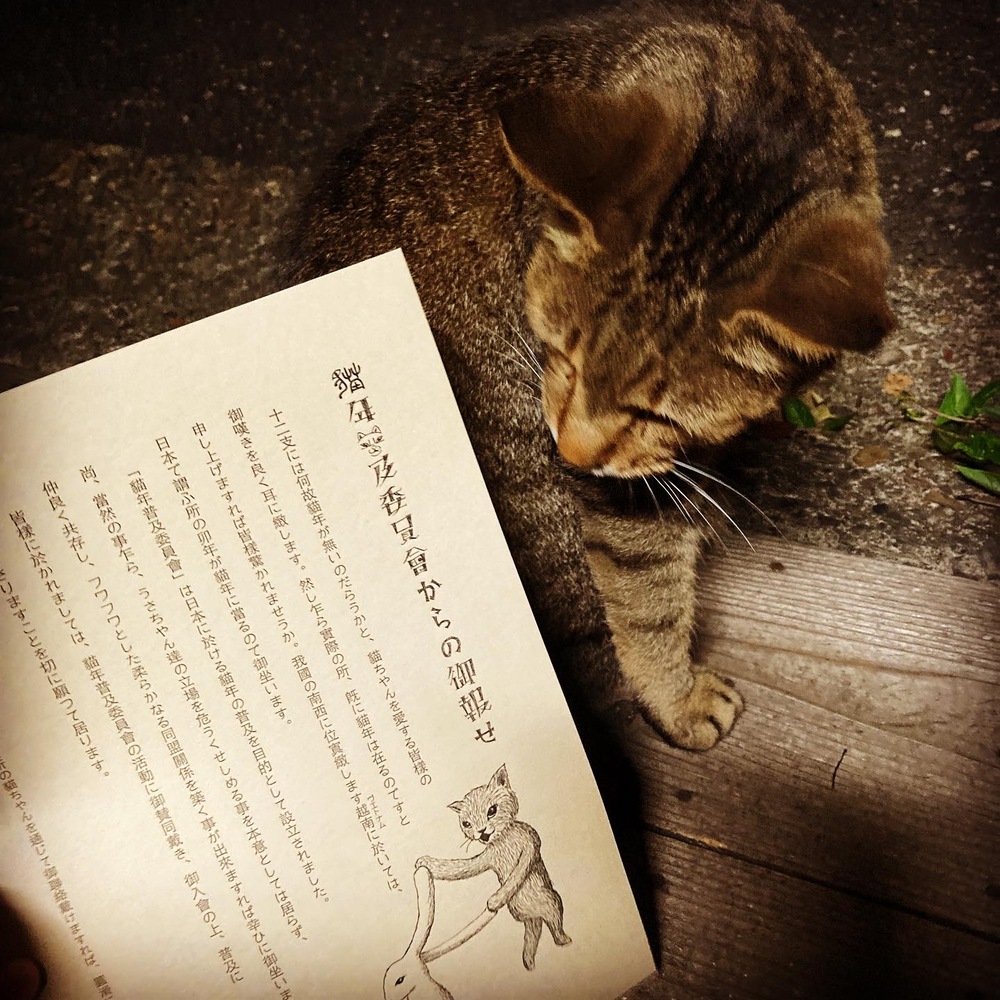 猫年普及委員會からの御報せ
十二支には何故猫年が無いのだらうかと、猫ちゃんを愛する皆様の
御嘆きを良く耳に緻します。然し乍ら實際の所、既に猫年は在るのですと
申し上げますれば皆様驚かれませうか。我國の南西に位寘緻します越南に於いては、
ヴェトナム
日本で謂ふ所の卯年が猫年に當るので御坐います。
「猫年普及委員會」は日本に於ける猫年の普及を目的として設立されました。
尚、當然の事乍ら、うさちゃん達の立場を危うくせしめる事を本意としては居らず、
仲良く共存し、フワフワとした柔らかなる同盟関係を築く事が出來ますれば幸ひに御坐いま
皆様に於かれましては、猫年普及委員會の活動に御賛同戴き、御入會の上、普及に
さりますことを切に願つて居ります。
の猫ちゃんを通じて御聯絡戴けますれば、